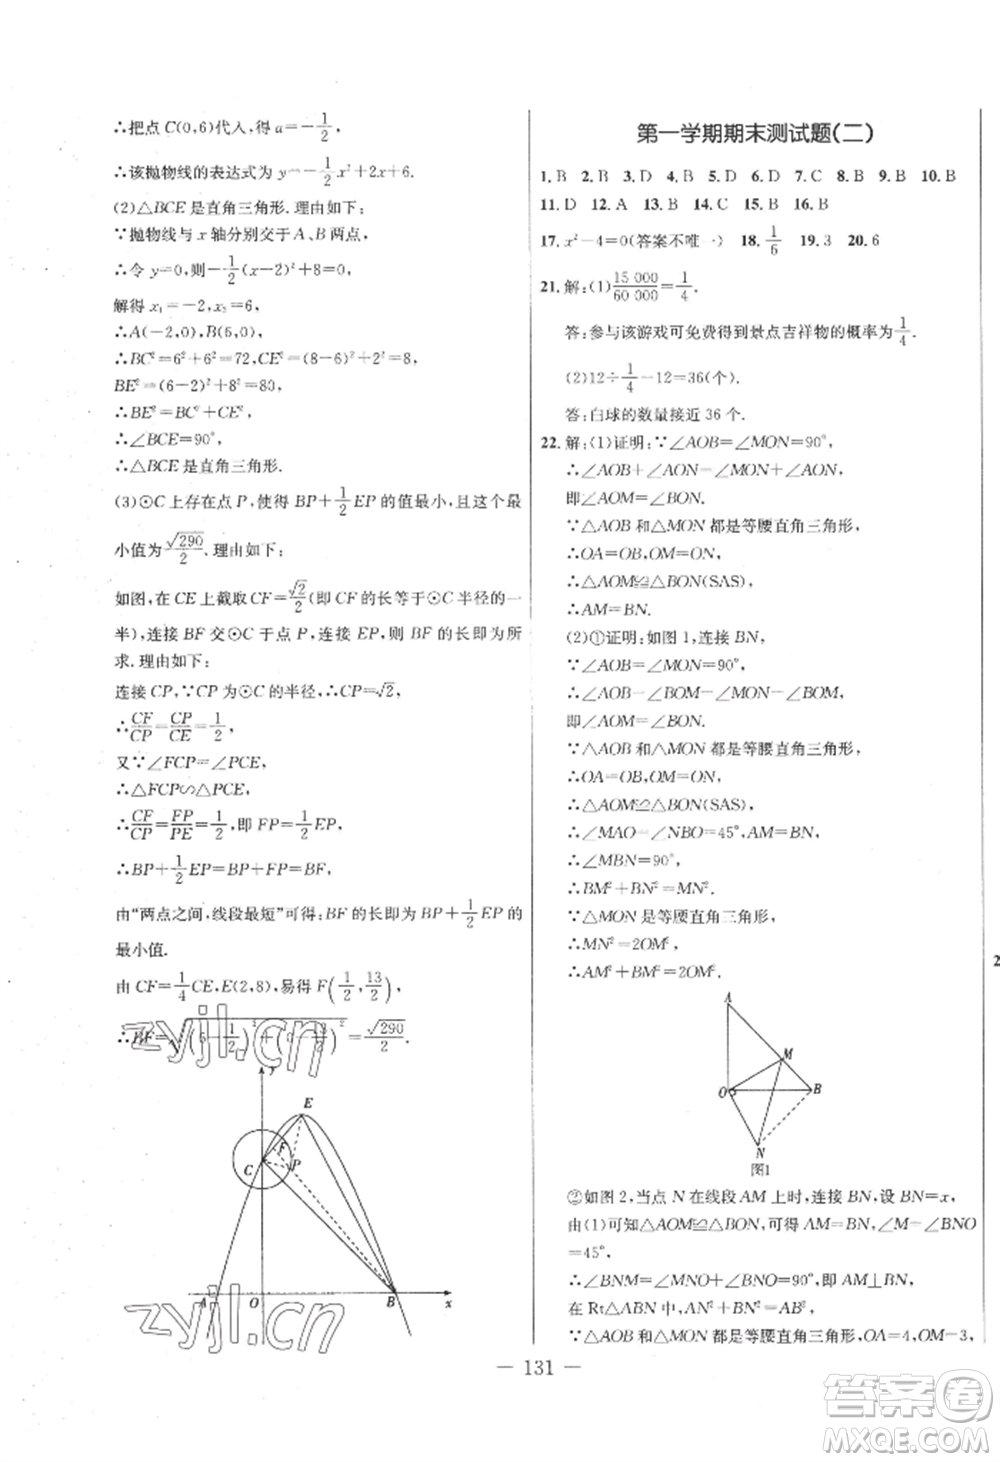 ∴把点 C(0,6)代入,得 a=-1/2,
∴该抛物线的表达式为 y=-1/2x²+2x+6.
(2)△BCE是直角三角形.理由如下:
∵抛物线与 x 轴分别交于 A、B 两点,
∴令 y=0,则-1/2(x-2)²+8=0,
解得 x₁=-2,x₂=6,
∴A(-2,0),B(6,0),
∴BC²=6²+6²=72,CE²=(8-6)²+2²=8,
BE²=(6-2)²+8²=80,
∴BE²=BC²+CE²,
∴∠BCE=90°,
∴△BCE是直角三角形.
(3)⊙C上存在点 P,使得 BP+1/2EP 的值最小且这个最
小值为√290/2.理由如下:
如图,在 CE 上截取 CF=√2/2(即 CF 的长等于⊙C 半径的一
半),连接 BF 交⊙C 于点 P,连接 EP,则 BF 的长即为所
求.理由如下:
连接 CP,∵CP 为⊙C 的半径,∴CP=√2,
∴CF/CP=CP/CE=1/2,
又∵∠FCP=∠PCE,
∴△FCP∽△PCE,
∴CF/CP=FP/PE=1/2,即 FP=1/2EP,
∴BP+1/2EP=BP+FP=BF,
由“两点之间,线段最短”可得:BF 的长即为 BP+1/2EP 的
最小值.
由 CF=1/4CE,E(2,8),易得 F(1/2,13/2),
∴BF= =√290/2.
y
E
F
C
P
A
O
B
x
第一学期期末测试题(二)
1. B 2. B 3. D 4. B 5. D 6. D 7. C 8. B 9. B 10. B
11. D 12. A 13. B 14. C 15. B 16. B
17. x²-4=0(答案不唯一) 18. 1/6 19. 3 20. 6
21. 解:(1)15 000/60 000=1/4.
答:参与该游戏可免费得到景点吉祥物的概率为1/4.
(2)12÷1/4-12=36(个).
答:白球的数量接近 36 个.
22. 解:(1)证明:∵∠AOB=∠MON=90°,
∴∠AOB+∠AON=∠MON+∠AON,
即∠AOM=∠BON.
∵△AOB 和△MON 都是等腰直角三角形,
∴OA=OB,OM=ON,
∴△AOM≌△BON(SAS),
∴AM=BN.
(2)①证明:如图 1,连接 BN,
∵∠AOB=∠MON=90°,
∴∠AOB-∠BOM=∠MON-∠BOM,
即∠AOM=∠BON.
∵△AOB 和△MON 都是等腰直角三角形,
∴OA=OB,OM=ON,
∴△AOM≌△BON(SAS),
∴∠MAO=∠NBO=45°,AM=BN,
∴∠MBN=90°,
∴BM²+BN²=MN².
∵△MON 是等腰直角三角形,
∴MN²=2OM²,
∴AM²+BM²=2OM².
A
M
O
B
N
图1
②如图 2,当点 N 在线段 AM 上时,连接 BN,设 BN=x,
由(1)可知△AOM≌△BON,可得 AM=BN,∠M=∠BNO
=45°,
∴∠BNM=∠BNO+∠MNO=90°,即 AM⊥BN,
在 Rt△ABN 中,AN²+BN²=AB²,
∵△AOB 和△MON 都是等腰直角三角形,OA=4,OM=3,
2
— 131 —
zyjl.cn
zyjl.cn
答案圈
MXQE.COM